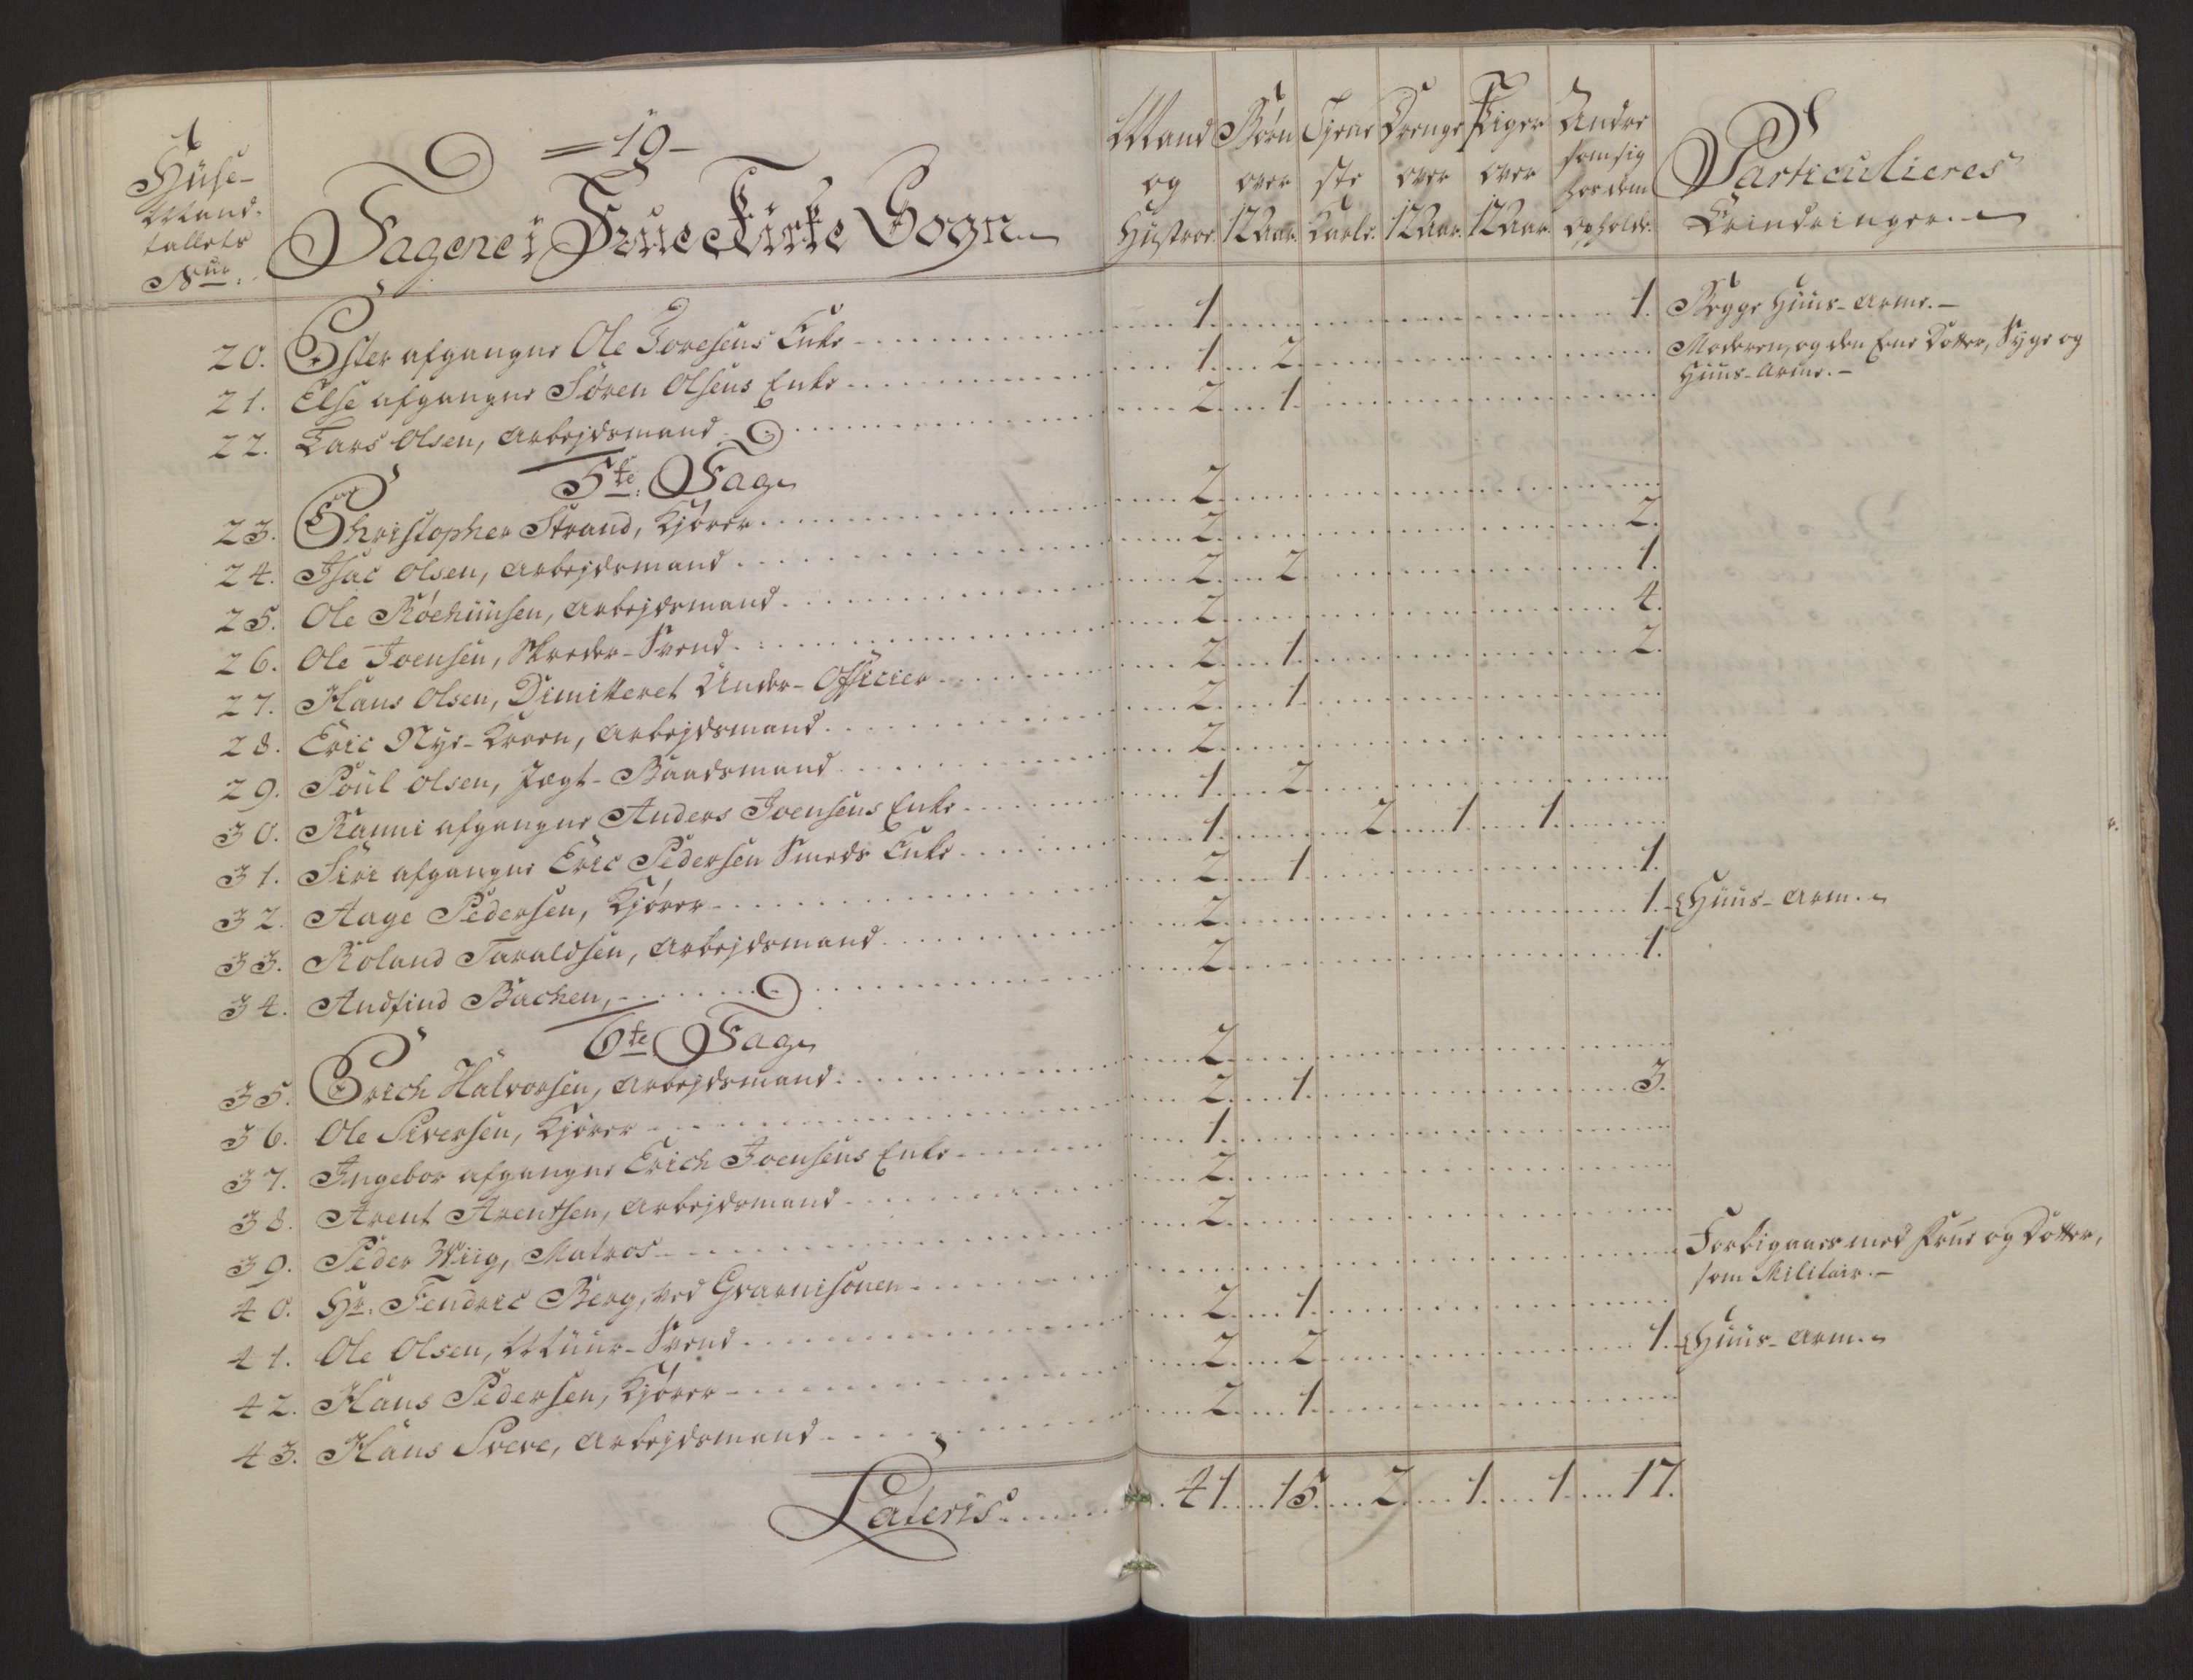 =19=
Huse-
Mand-
tallets
Nur:
Tagene i Frue Kirke Sogn
Mand og Hustroe
Børn over 12 Aar
Tjene ste Karle
Drenge over 12 Aar
Piger over 12 Aar
Andre som sig hos dem opholde
Particulieres Erindringer
20. Ester afgangne Ole Toresens Enke 1 1. Begge Huus-Arme.
21. Else afgangne Søren Olsens Enke 1 2 Moderen, og den Eene Dotter, Syge og
Huus-Arme.
22. Lars Olsen, Arbejdsmand 2 1
5te: Tag
23. Christopher Strand, Kjører 2
24. Isac Olsen, Arbejdsmand 2 2.
25. Ole Roehuusen, Arbejdsmand 2 2 1.
26. Ole Joensen, Skreder-Svend 2 4.
27. Hans Olsen, Dimitteret Under-Officier 2 1 2.
28. Eric Nye-Kroen, Arbejdsmand 2 1
29. Poul Olsen, Jægt-Baadsmand 2
30. Ranni afgangne Anders Joensens Enke 1 2
31. Siri afgangne Eric Pedersen Smeds Enke 1 2 1 1
32. Aage Pedersen, Kjører 2 1 1.
33. Roland Taraldsen, Arbejdsmand 2 1. Huus-Arm.
34. Andfind Bachen, 2 1.
6te Tag
35. Erich Halvorsen, Arbejdsmand 2
36. Ole Siversen, Kjører 2 1 3.
37. Ingebor afgangne Erich Joensens Enke 1
38. Arent Arentsen, Arbejdsmand 2
39. Peder Wiig, Matros 2
40. Hr. Fendric Berg, ved Gvarnisonen Forbigaaes med Frue og Dotter,
som Militair.
41. Ole Olsen, Muur-Svend 2 1
42. Hans Pedersen, Kjører 2 2 1. Huus-Arm.
43. Hans Sveve, Arbejdsmand 2 1
Lateris 41 15 2 1 1 17.